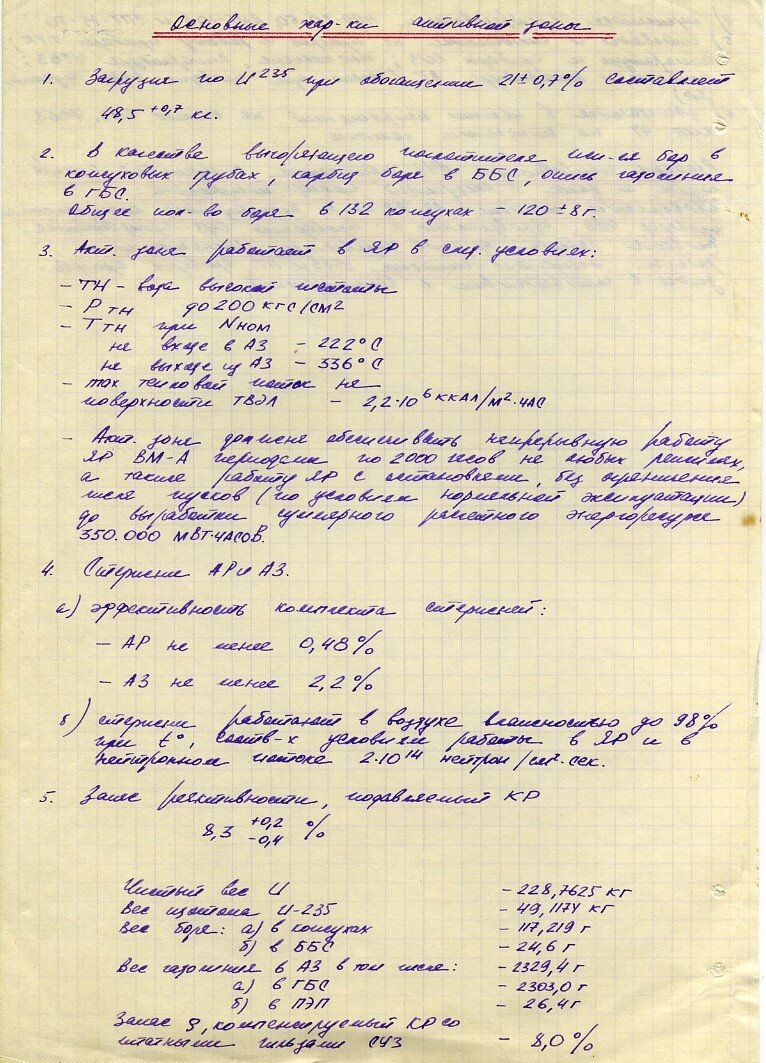 Основные хар-ки активной зоны
1. Загрузка по U²³⁵ при обогащении 21±0,7% составляет
48,5⁺⁰,⁷ кг.
2. В качестве выгорающего поглотителя исп-ся бор в
кожуховых трубах, карбид бора в ББС, окись гадолиния
в ГБС.
Общее кол-во бора в 132 кожухах – 120 ± 8 г.
3. Акт. зона работает в ЯР в след. условиях:
– ТН – вода высокой чистоты
– Р тн до 200 кгс/см²
– Т тн при Nном
на входе в АЗ – 222°С
на выходе из АЗ – 336°С
– max тепловой поток на
поверхности ТВЭЛ – 2,2·10⁶ ккал/м²·час
– Акт. зона должна обеспечивать непрерывную работу
ЯР ВМ-А периодами по 2000 часов на любых режимах,
а также работу ЯР с остановками, без ограничения
числа пусков (по условиям нормальной эксплуатации)
до выработки суммарного расчетного энергоресурса
350.000 МВт·часов.
4. Стержни АР и АЗ.
а) эффективность комплекта стержней:
– АР не менее 0,48%
– АЗ не менее 2,2%
б) стержни работают в воздухе влажностью до 98%
при t°, соотв-х условиям работы в ЯР и в
нейтронном потоке 2·10¹⁴ нейтрон/см²·сек.
5. Запас реактивности, подавляемый КР
8,3 +0,2 -0,4 %
Чистый вес U – 228,7625 кг
Вес изотопа U-235 – 49,1174 кг
Вес бора: а) в кожухах – 117,219 г
б) в ББС – 24,6 г
Вес гадолиния в АЗ в том числе: – 2329,4 г
а) в ГБС – 2303,0 г
б) в ПЭЛ – 26,4 г
Запас ρ, компенсируемый КР со
штатными гильзами СУЗ – 8,0%